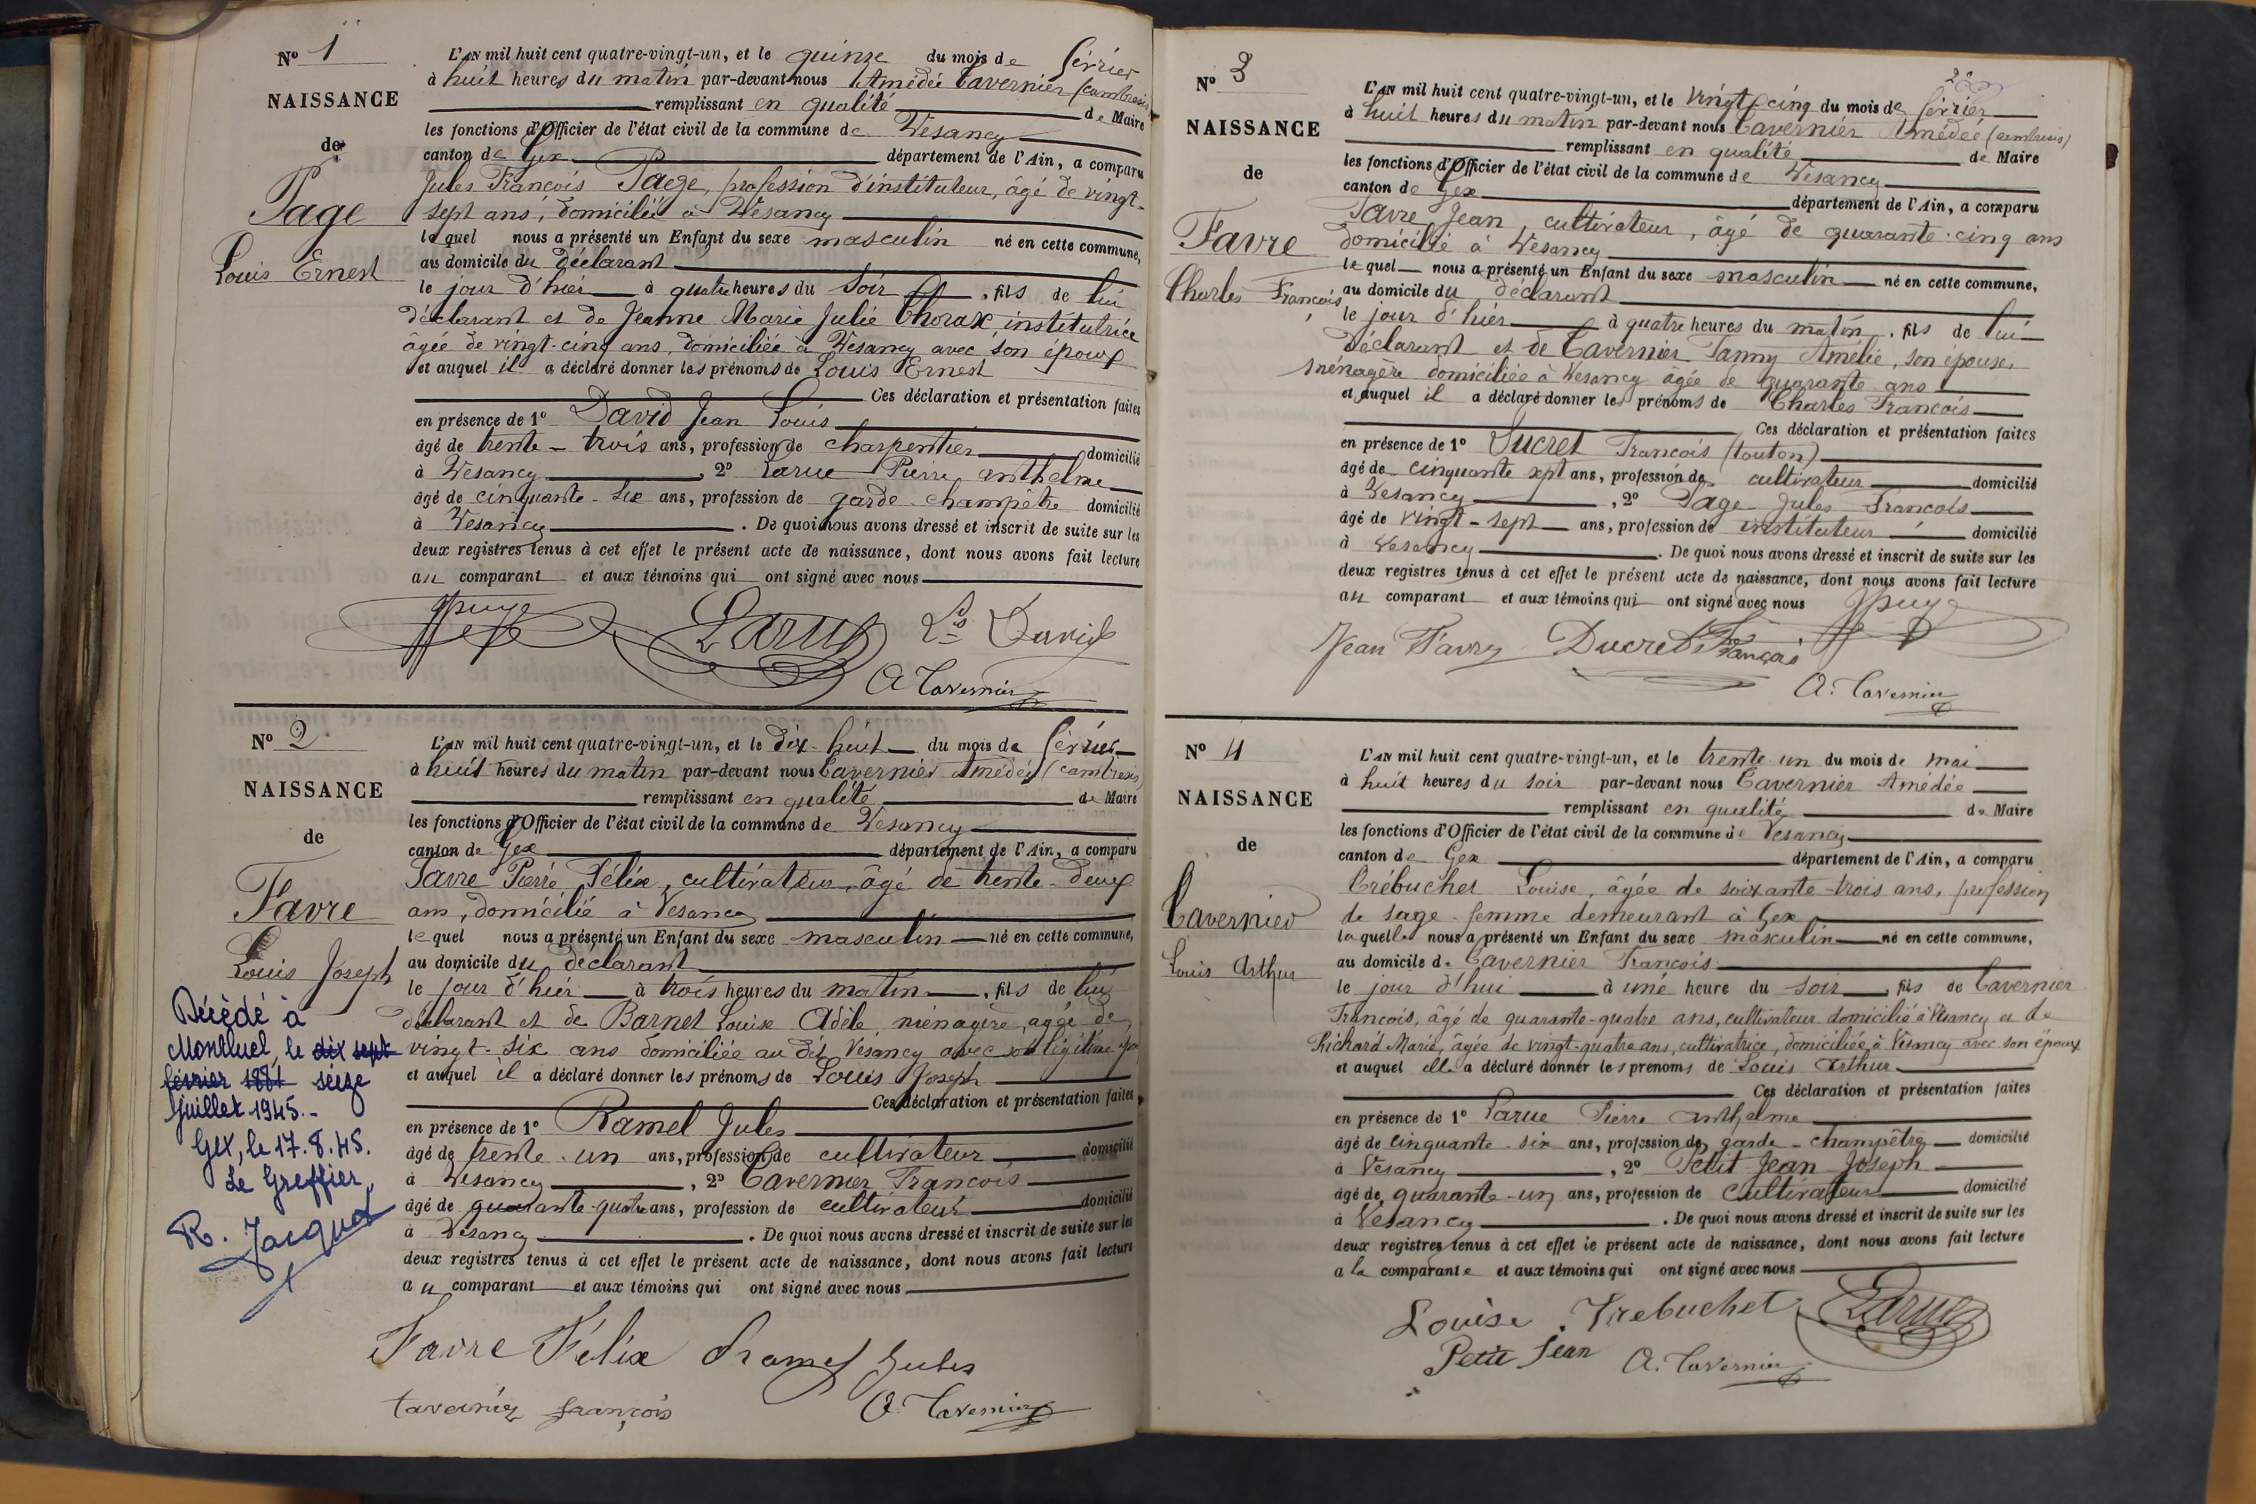 N° 1
NAISSANCE
de
Page
Louis Ernest
L'AN mil huit cent quatre-vingt-un, et le quinze du mois de février
à huit heures du matin par-devant nous Amédée Tavernier (cambrosis)
remplissant en qualité de Maire
les fonctions d'Officier de l'état civil de la commune de Vesancy
canton de Gex département de l'Ain, a comparu
Jules François Page, profession d'instituteur, âgé de vingt-
sept ans, domicilié à Vesancy
lequel nous a présenté un Enfant du sexe masculin né en cette commune,
au domicile du déclarant
le jour d'hier à quatre heures du soir, fils de lui
déclarant et de Jeanne Marie Julie Thorax, institutrice
âgée de vingt-cinq ans, domiciliée à Vesancy avec son époux
et auquel il a déclaré donner les prénoms de Louis Ernest
Ces déclaration et présentation faites
en présence de 1° David Jean Louis
âgé de trente-trois ans, profession de charpentier domicilié
à Vesancy, 2° Larue Pierre anthelme
âgé de cinquante-six ans, profession de garde-champêtre domicilié
à Vesancy. De quoi nous avons dressé et inscrit de suite sur les
deux registres tenus à cet effet le présent acte de naissance, dont nous avons fait lecture
au comparant et aux témoins qui ont signé avec nous
JPage Larue Ls David
A. Tavernier
N° 2
NAISSANCE
de
Favre
Louis Joseph
Décédé à
Montluel, le dix sept
février 1881 seize
Juillet 1945.-
Gex, le 17.8.45.
Le Greffier,
R. Jacquot
L'AN mil huit cent quatre-vingt-un, et le dix-huit du mois de février
à huit heures du matin par-devant nous Tavernier Amédée (cambrosis)
remplissant en qualité de Maire
les fonctions d'Officier de l'état civil de la commune de Vesancy
canton de Gex département de l'Ain, a comparu
Favre Pierre Félix, cultivateur, âgé de trente-deux
ans, domicilié à Vesancy
lequel nous a présenté un Enfant du sexe masculin né en cette commune,
au domicile du déclarant
le jour d'hier à trois heures du matin, fils de lui
déclarant et de Barnet Louise Adèle, ménagère, agée de
vingt-six ans domiciliée au dit Vesancy avec son légitime
et auquel il a déclaré donner les prénoms de Louis Joseph
Ces déclaration et présentation faites
en présence de 1° Ramel Jules
âgé de trente-un ans, profession de cultivateur domicilié
à Vesancy, 2° Tavernier François
âgé de quarante-quatre ans, profession de cultivateur domicilié
à Vesancy. De quoi nous avons dressé et inscrit de suite sur les
deux registres tenus à cet effet le présent acte de naissance, dont nous avons fait lecture
au comparant et aux témoins qui ont signé avec nous
Favre Félix Ramel Jules
tavernier françois A. Tavernier
N° 3
NAISSANCE
de
Favre
Charles François
L'AN mil huit cent quatre-vingt-un, et le vingt-cinq du mois de février
à huit heures du matin par-devant nous Tavernier Amédée (cambrosis)
remplissant en qualité de Maire
les fonctions d'Officier de l'état civil de la commune de Vesancy
canton de Gex département de l'Ain, a comparu
Favre Jean, cultivateur, âgé de quarante-cinq ans
domicilié à Vesancy
lequel nous a présenté un Enfant du sexe masculin né en cette commune,
au domicile du déclarant
le jour d'hier à quatre heures du matin, fils de lui
déclarant et de Tavernier Fanny Amélie, son épouse,
ménagère domiciliée à Vesancy âgée de quarante ans
et auquel il a déclaré donner les prénoms de Charles François
Ces déclaration et présentation faites
en présence de 1° Ducret François (touton)
âgé de cinquante sept ans, profession de cultivateur domicilié
à Vesancy, 2° Page Jules François
âgé de vingt-sept ans, profession de instituteur domicilié
à Vesancy. De quoi nous avons dressé et inscrit de suite sur les
deux registres tenus à cet effet le présent acte de naissance, dont nous avons fait lecture
au comparant et aux témoins qui ont signé avec nous JPage
Jean Favre Ducret François
A. Tavernier
N° 4
NAISSANCE
de
Tavernier
Louis Arthur
L'AN mil huit cent quatre-vingt-un, et le trente-un du mois de mai
à huit heures du soir par-devant nous Tavernier Amédée
remplissant en qualité de Maire
les fonctions d'Officier de l'état civil de la commune de Vesancy
canton de Gex département de l'Ain, a comparu
Trébuchet Louise, âgée de soixante-trois ans, profession
de sage-femme demeurant à Gex
laquelle nous a présenté un Enfant du sexe masculin né en cette commune,
au domicile de Tavernier François
le jour d'hui à une heure du soir, fils de Tavernier
François, âgé de quarante-quatre ans, cultivateur domicilié à Vesancy et de
Richard Marie, âgée de vingt-quatre ans, cultivatrice, domiciliée à Vesancy avec son époux
et auquel elle a déclaré donner les prenoms de Louis Arthur
Ces déclaration et présentation faites
en présence de 1° Larue Pierre anthelme
âgé de cinquante-six ans, profession de garde-champêtre domicilié
à Vesancy, 2° Petit-Jean Joseph
âgé de quarante-un ans, profession de cultivateur domicilié
à Vesancy. De quoi nous avons dressé et inscrit de suite sur les
deux registres tenus à cet effet le présent acte de naissance, dont nous avons fait lecture
a la comparante et aux témoins qui ont signé avec nous
Louise Trebuchet Larue
Petit Jean A. Tavernier